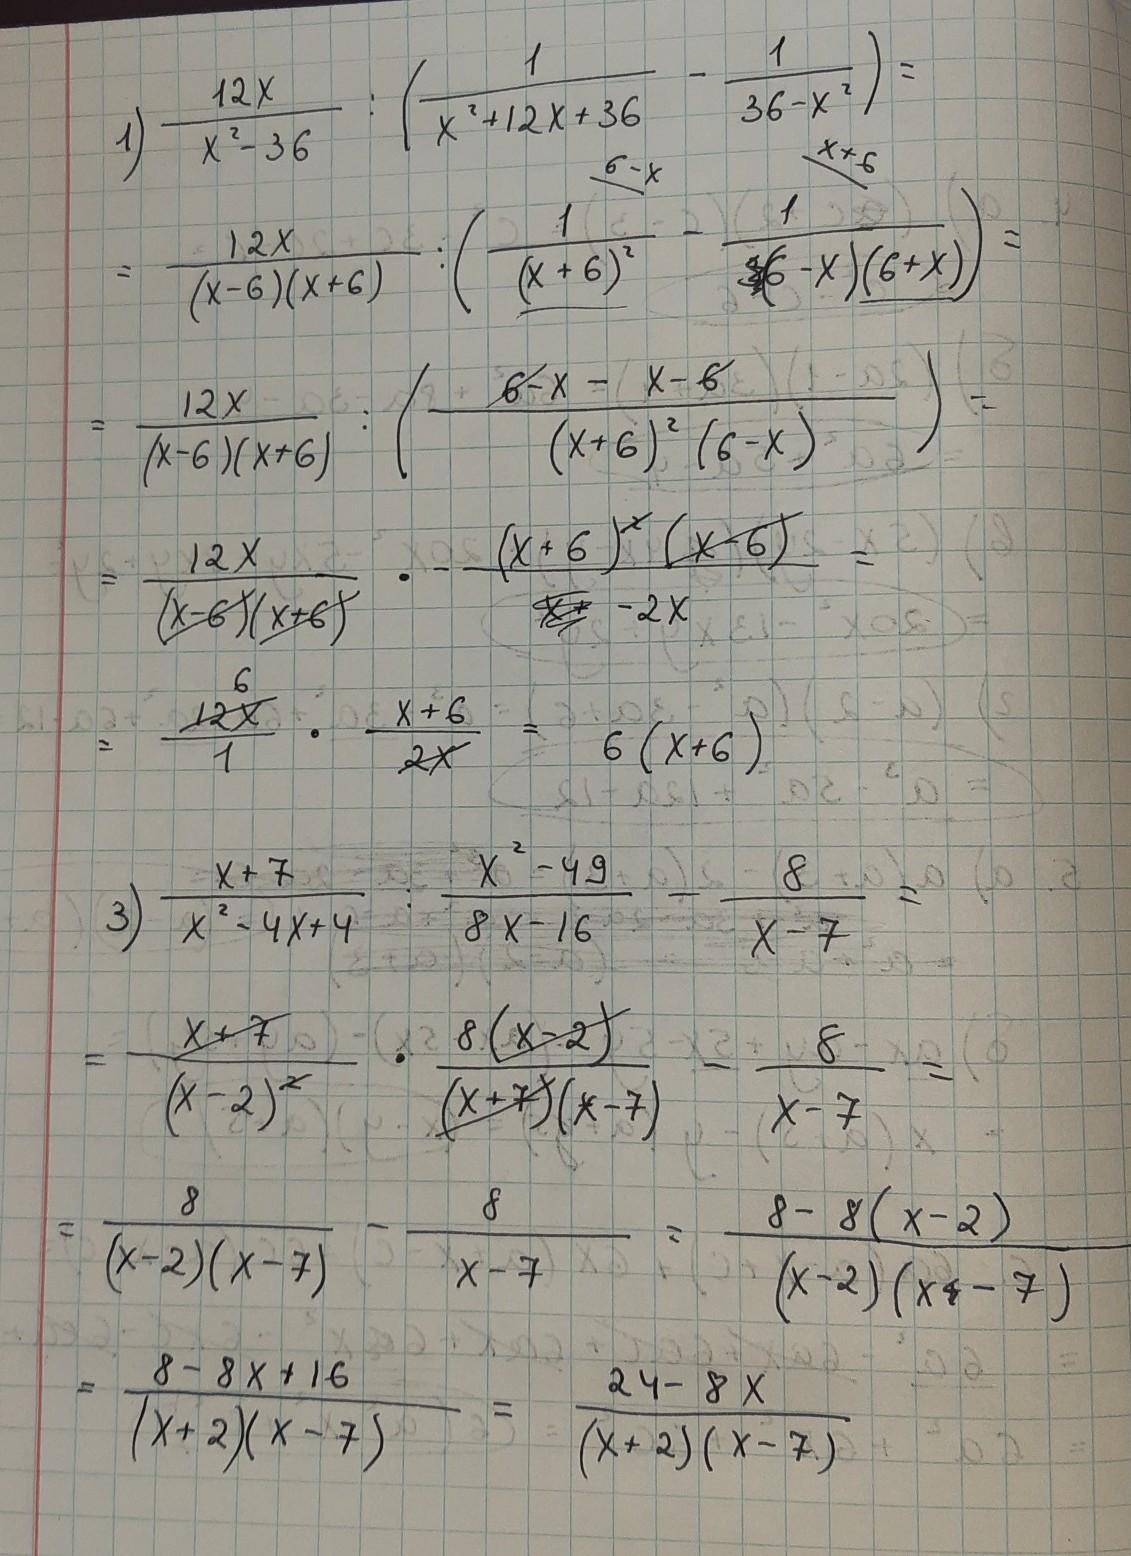 1) 12x/(x²-36) : (1/(x²+12x+36) - 1/(36-x²)) =
6-x x+6
= 12x/((x-6)(x+6)) : (1/(x+6)² - 1/((6-x)(6+x))) =
= 12x/((x-6)(x+6)) : ((6-x - x-6)/((x+6)²(6-x))) =
= 12x/((x-6)(x+6)) · -((x+6)²(x-6))/(-2x) =
6
= 12x/1 · (x+6)/2x = 6(x+6)
3) (x+7)/(x²-4x+4) : (x²-49)/(8x-16) - 8/(x-7) =
= (x+7)/(x-2)² · 8(x-2)/((x+7)(x-7)) - 8/(x-7) =
= 8/((x-2)(x-7)) - 8/(x-7) = (8-8(x-2))/((x-2)(x-7))
= (8-8x+16)/((x+2)(x-7)) = (24-8x)/((x+2)(x-7))